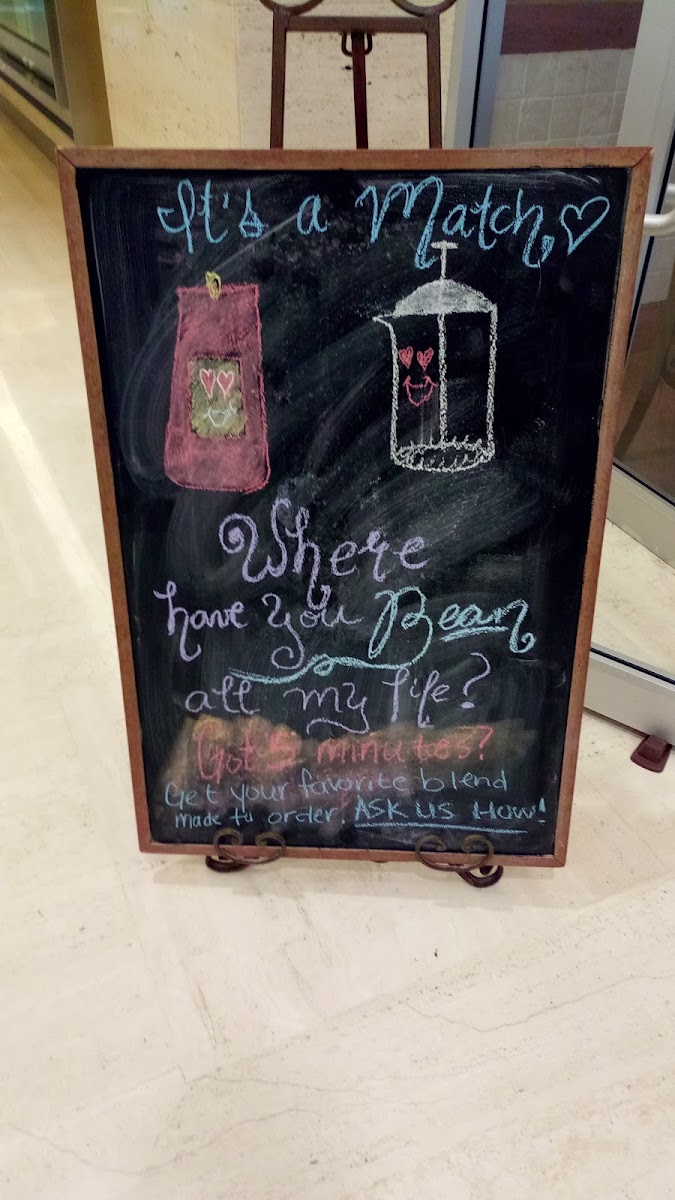 It's a Match,
Where
have you Bean
all my life?
Got 5 minutes?
Get your favorite blend
made to order. ASK US HOW!